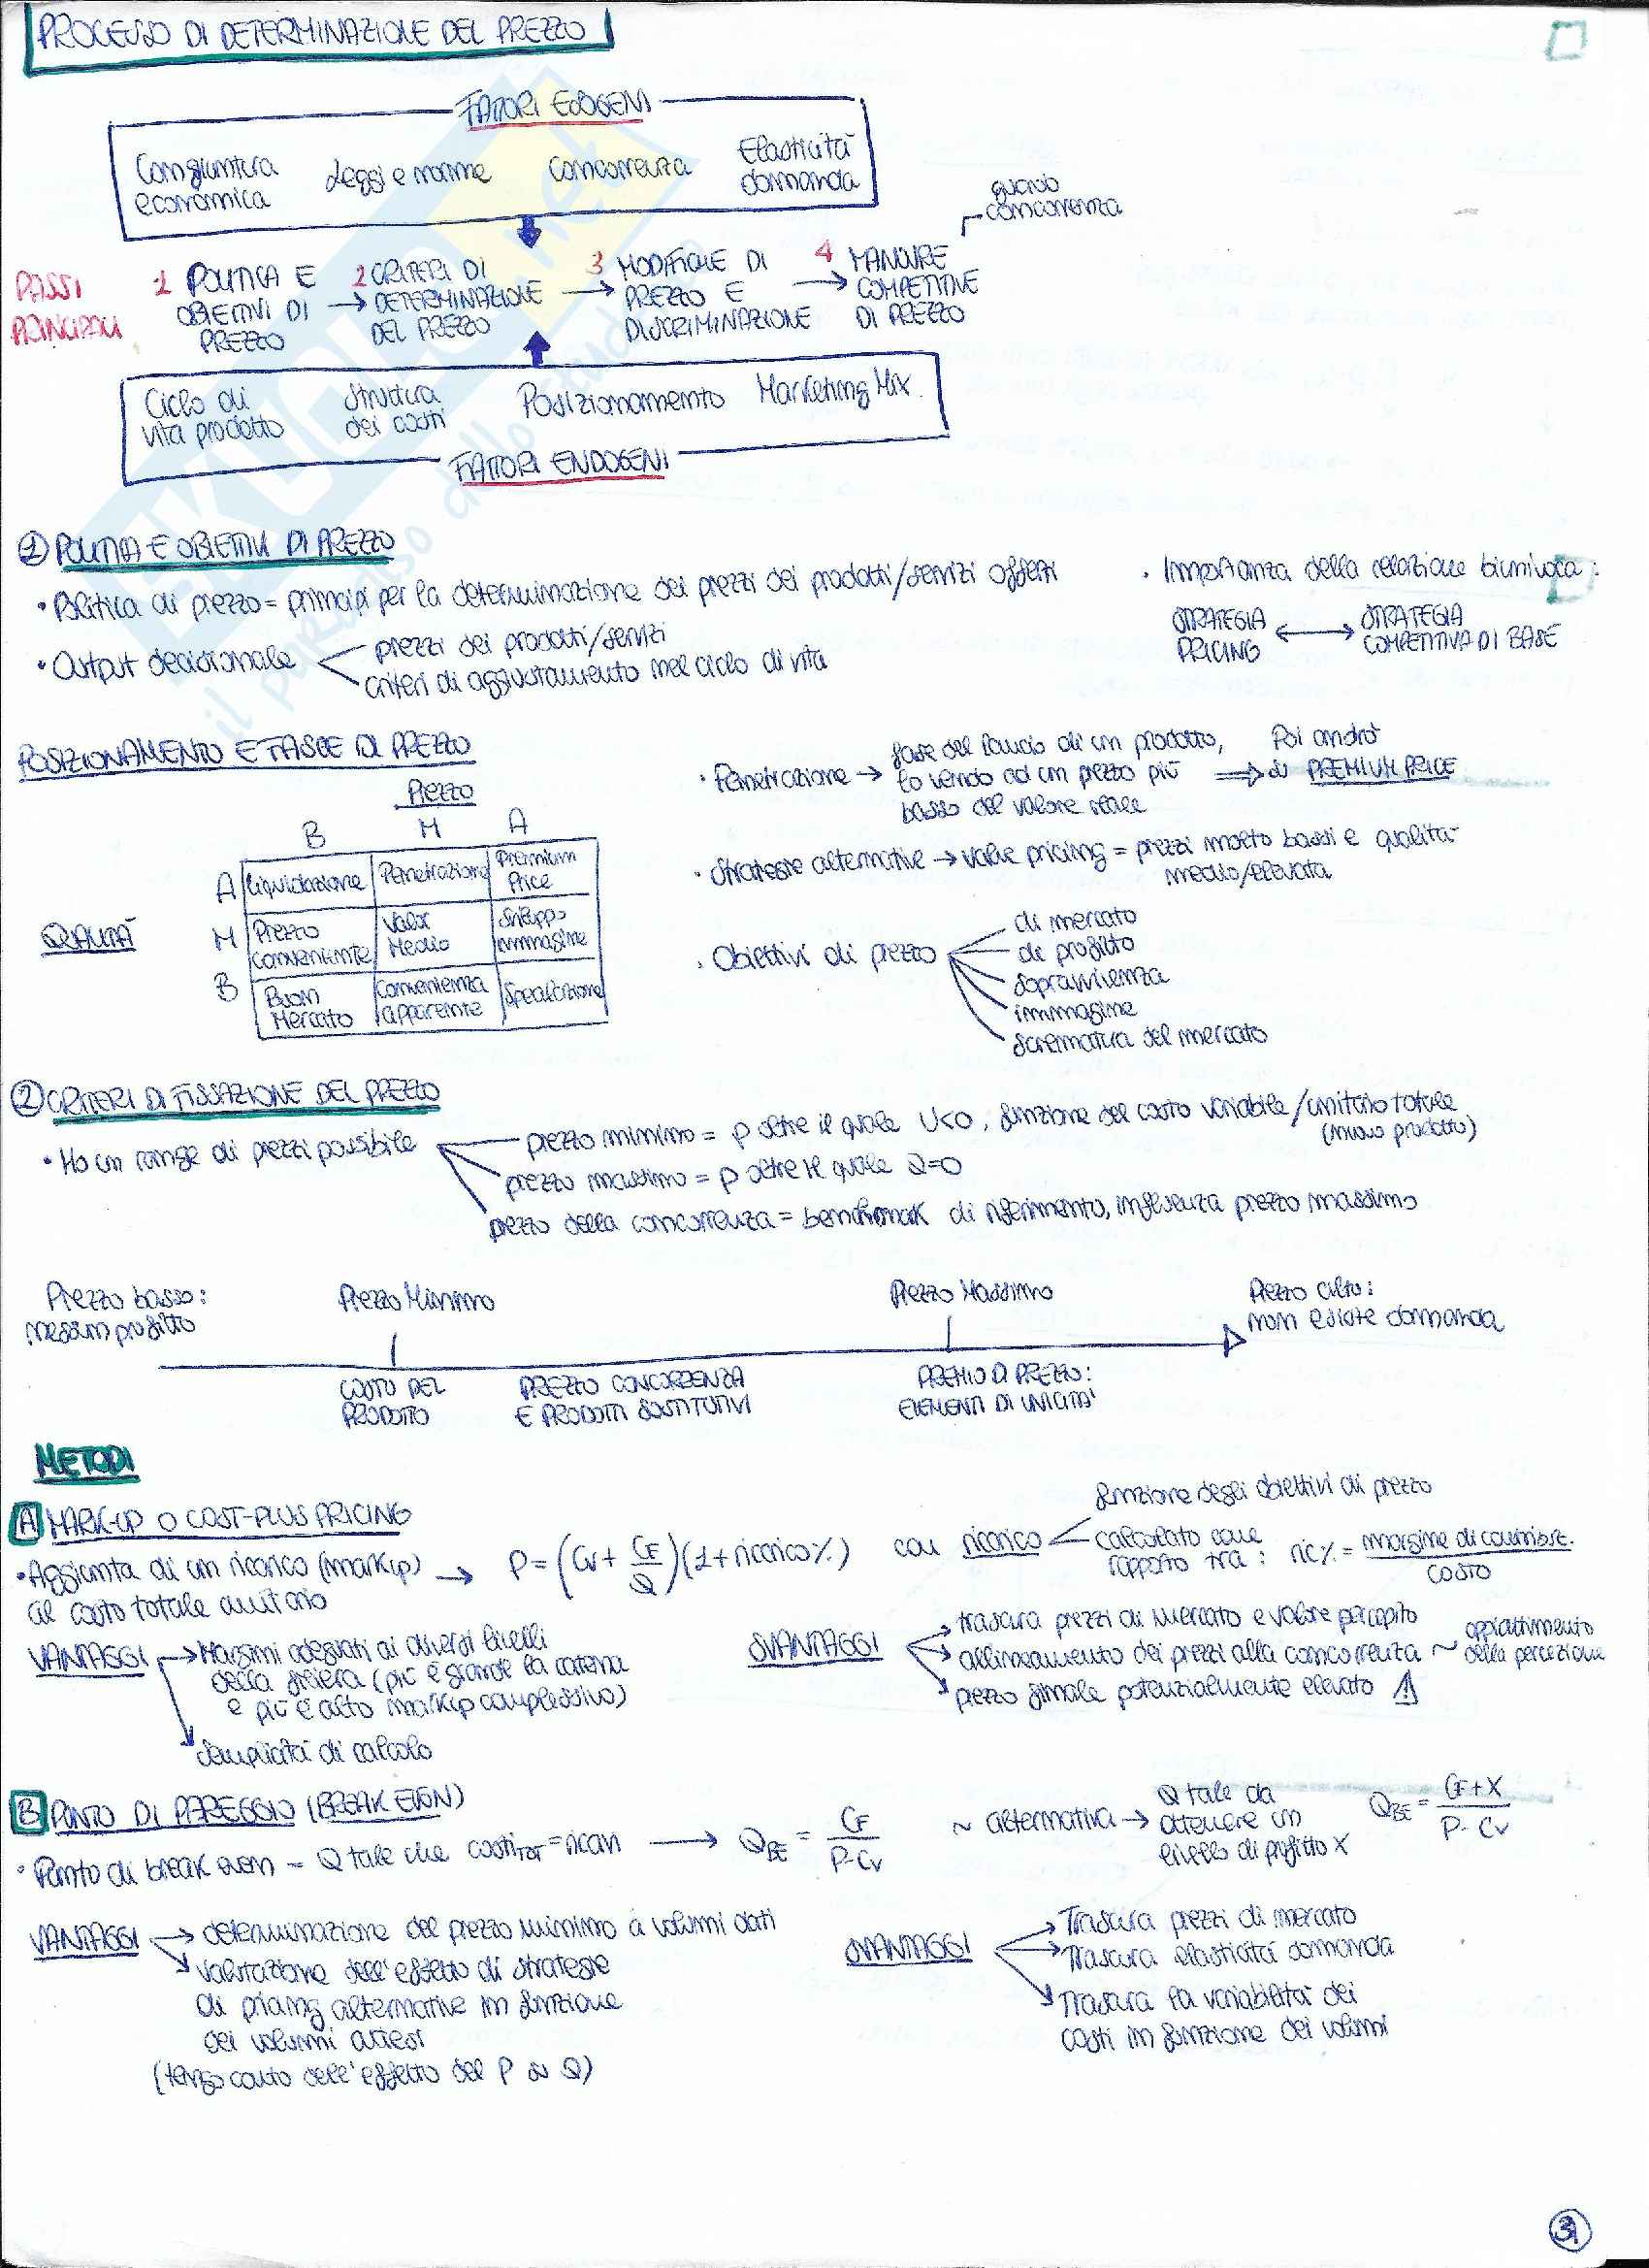 PROCESSO DI DETERMINAZIONE DEL PREZZO
FATTORI ESOGENI
Congiuntura economica
Leggi e norme
Concorrenza
Elasticità domanda
guardo concorrenza
PASSI PRINCIPALI
1 POLITICA E OBIETTIVI DI PREZZO
2 CRITERI DI DETERMINAZIONE DEL PREZZO
3 MODIFICHE DI PREZZO E DISCRIMINAZIONE
4 MANOVRE COMPETITIVE DI PREZZO
Ciclo di vita prodotto
Struttura dei costi
Posizionamento
Marketing Mix
FATTORI ENDOGENI
1 POLITICA E OBIETTIVI DI PREZZO
• Politica di prezzo = principi per la determinazione dei prezzi dei prodotti/servizi offerti
• Output decisionale
prezzi dei prodotti/servizi
criteri di aggiustamento nel ciclo di vita
• Importanza della relazione biunivoca:
STRATEGIA PRICING ↔ STRATEGIA COMPETITIVA DI BASE
POSIZIONAMENTO E FASCE DI PREZZO
Prezzo
B M A
QUALITÀ
A Liquidazione Penetrazione Premium Price
M Prezzo conveniente Valor Medio Sviluppo immagine
B Buon Mercato Convenienza apparente Speculazione
• Penetrazione → fase del lancio di un prodotto,
lo vendo ad un prezzo più
basso del valore reale
⇒ Poi andrò di PREMIUM PRICE
• Strategie alternative → value pricing = prezzi molto bassi e qualità
medio/elevata
• Obiettivi di prezzo
di mercato
di profitto
sopravvivenza
immagine
scrematura del mercato
2 CRITERI DI FISSAZIONE DEL PREZZO
• Ho un range di prezzi possibile
prezzo minimo = p oltre il quale U<0, funzione del costo variabile/unitario totale
(nuovo prodotto)
prezzo massimo = p oltre il quale Q=0
prezzo della concorrenza = benchmark di riferimento, influenza prezzo massimo
Prezzo basso:
nessun profitto
Prezzo Minimo
Prezzo Massimo
Prezzo alto:
non esiste domanda
COSTO DEL PRODOTTO
PREZZO CONCORRENZA E PRODOTTI SOSTITUTIVI
PREMIO DI PREZZO:
ELEMENTI DI UNICITÀ
METODI
A MARK-UP O COST-PLUS PRICING
• Aggiunta di un ricarico (markup)
al costo totale unitario
→ P = (Cv + CF/Q)(1 + ricarico%)
con ricarico
funzione degli obiettivi di prezzo
calcolato come rapporto tra: ric% = margine di contribuz./costo
VANTAGGI
Margini adeguati ai diversi livelli
della filiera (più è grande la catena
e più è alto markup complessivo)
Semplicità di calcolo
SVANTAGGI
trascura prezzi di mercato e valore percepito
allineamento dei prezzi alla concorrenza ~ appiattimento della percezione
prezzo finale potenzialmente elevato ⚠
B PUNTO DI PAREGGIO (BREAK EVEN)
• Punto di break even = Q tale che costi TOT = ricavi → QBE = CF/(P-Cv)
~ alternativa → Q tale da ottenere un livello di profitto X
QBE = (CF+X)/(P-Cv)
VANTAGGI
determinazione del prezzo minimo a volumi dati
valutazione dell'effetto di strategie
di pricing alternative in funzione
dei volumi attesi
(tengo conto dell'effetto del P su Q)
SVANTAGGI
Trascura prezzi di mercato
Trascura elasticità domanda
Trascura la variabilità dei
costi in funzione dei volumi
3